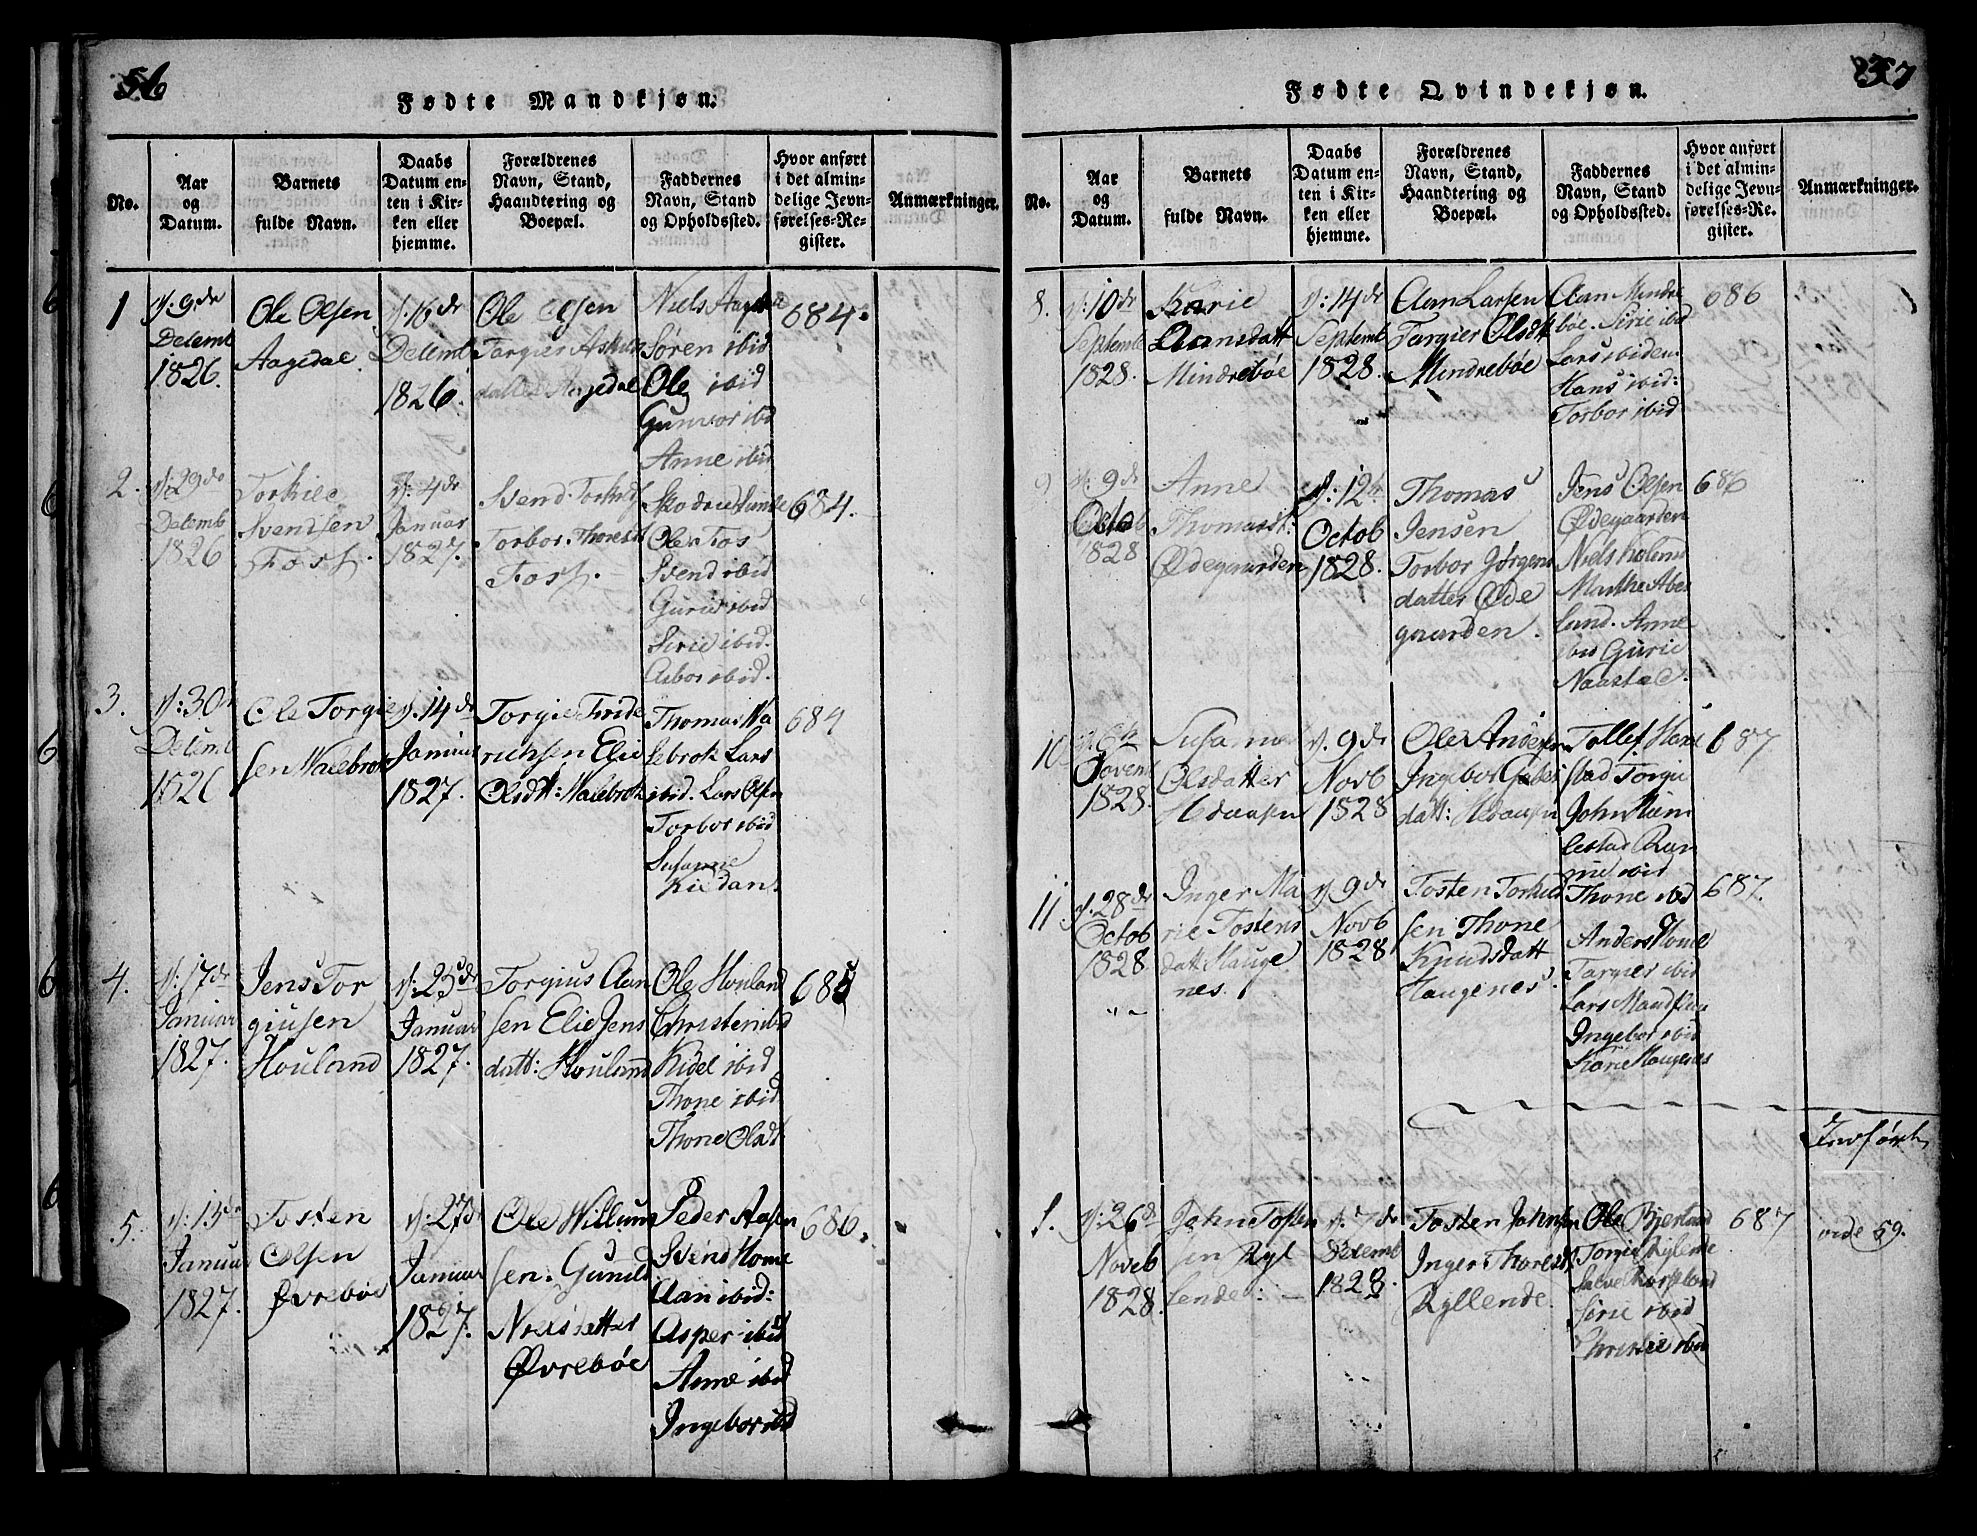 56
Fødte Mandkjøn.
No.
Aar
og
Datum.
Barnets
fulde Navn.
Daabs
Datum en-
ten i Kir-
ken eller
hjemme.
Forældrenes
Navn, Stand,
Haandtering og
Boepæl.
Faddernes
Navn, Stand
og Opholdssted.
Hvor anført
i det almin-
delige Jevn-
førelses-Re-
gister.
Anmærkninger.
1
d: 9de
Decemb
1826.
Ole Olsen
Aagedal.
d: 16de
Decemb
1826.
Ole Olsen
Targier
datter Aagedal
Niels Aagedal
Søren ibid
Ole ibid
Gunvor ibid
Anne ibid
684.
2.
d: 29de
Decemb
1826
Torkild
Svendsen
Foss.
d: 4de
Januar
1827.
Svend Torkilds
Torbor Thoresd
Foss.
Ole Fos
Svend ibid
Gurie ibid
Sirie ibid.
Asbor ibid.
684.
3.
d: 30
Decemb
1826
Ole Torgie
sen Walebrok
d. 14de
Januar
1827.
Torgie Fride
richsen Elie
Olsdtt: Walebrok
Thomas Wa
lebrok Lars
ibid. Lars Olsen
Torbor ibid
Susanne
684
4.
d: 17de
Januar
1827.
Jens Tor
giusen
Houland
d: 25de
Januar
1827.
Torgius Aan
sen Elie Jens
datt: Houland
Ole Houland
Christen ibid
Kidel ibid
Thone ibid
Thone Olsdt
685
5.
d: 13de
Januar
1827.
Tosten
Olsen
Øvrebøe
d: 27de
Januar
1827.
Ole Willum
sen. Gunild
Nielsdatter
Øvrebøe
Peder Aasen
Svend Home
Aan ibid:
Asper ibid
Anne ibid
Ingebor ibid
686.
57
Fødte Qvindekjøn.
No.
Aar
og
Datum.
Barnets
fulde Navn.
Daabs
Datum en-
ten i Kir-
ken eller
hjemme.
Forældrenes
Navn, Stand,
Haandtering og
Boepæl.
Faddernes
Navn, Stand
og Opholdssted.
Hvor anført
i det almin-
delige Jevn-
førelses-Re-
gister.
Anmærkninger.
8.
d: 10de
Septemb
1828.
Karie
Aansdatt
Mindrebøe
d: 14de
Septemb
1828.
Aan Larsen
Targier Olsdtt
Mindrebøe
Aan Mindre
bøe. Sirie ibid
Lars ibidem
Hans ibid:
Torbor ibid
686
9
d: 9de
Octob
1828
Anne
Thomasdt:
Ødegaarden
d: 12te
Octob
1828.
Thomas
Jensen
Torbor Jørgens
datter Øde
gaarden.
Jens Olsen
Ødegaarden
Niels
Marthe Abe
land. Anne
ibid Gurie
Naastad.
686
10
Novemb
1828.
Susanne
Olsdatter
Hdaasen
d. 9de
Novb
1828
Ole Anders
Ingebor
datt: Hdaasen
Tollef
stad Torgie
John
lestad
ibid
687
11
d. 28de
Octob
1828
Inger Ma
rie Tostens
datt Hauge
nes.
d 9de
Novb
1828
Tosten Torkild
sen Thone
Knudsdatt
Haugenes.
Thone ibid
Anders Home
Targier ibid
Lars
Ingebor ibid
Karie Haugenes
687.
Indført
1.
d: 26de
Noveb
1828.
John Tosten
sen Ryl
lende: —
d: 7de
Decemb
1828.
Tosten Johnsen
Inger Thoresdt.
Ryllende.
Ole Bjerland
Torgie Rylende
Salve
Sirie ibid
Christie ibid
687
vide 59.